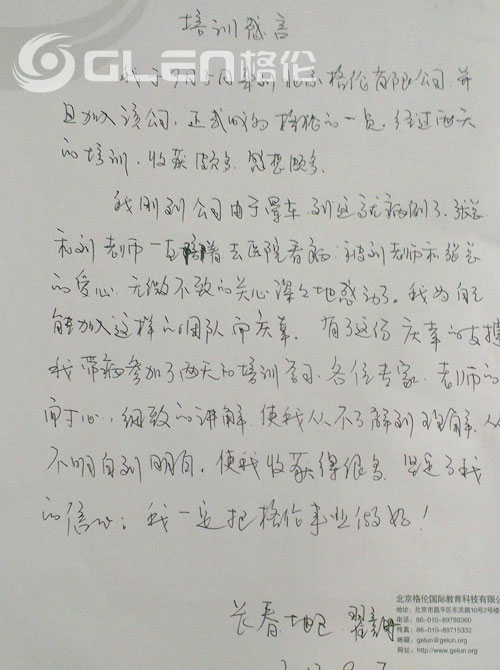 培训感言
GLEN格伦
我于 月 日来到北京格伦有限公司,并
且加入该公司,正式成为格伦的一员,经过两天
的培训,收获颇多,感想颇多。
我刚到公司由于晕车,到这就病倒了,张总
和刘老师一直陪着去医院看病,被刘老师和张总
的爱心,无微不致的关心深深地感动了。我为自己
能加入这样的团队而庆幸。有了这份庆幸的支撑
我带病参加了两天的培训学习,各位专家、老师的
耐心,细致的讲解,使我从不了解到理解,从
不明白到明白,使我收获得很多,坚定了我
的信心:我一定把格伦事业做好!
长春地区 翟
北京格伦国际教育科技有限
地址:北京市昌平区东关路10号2号楼
电话:86-010-89788360
传真:86-010-89715332
邮箱:gelun@gelun.org
网址:http://www.gelun.org